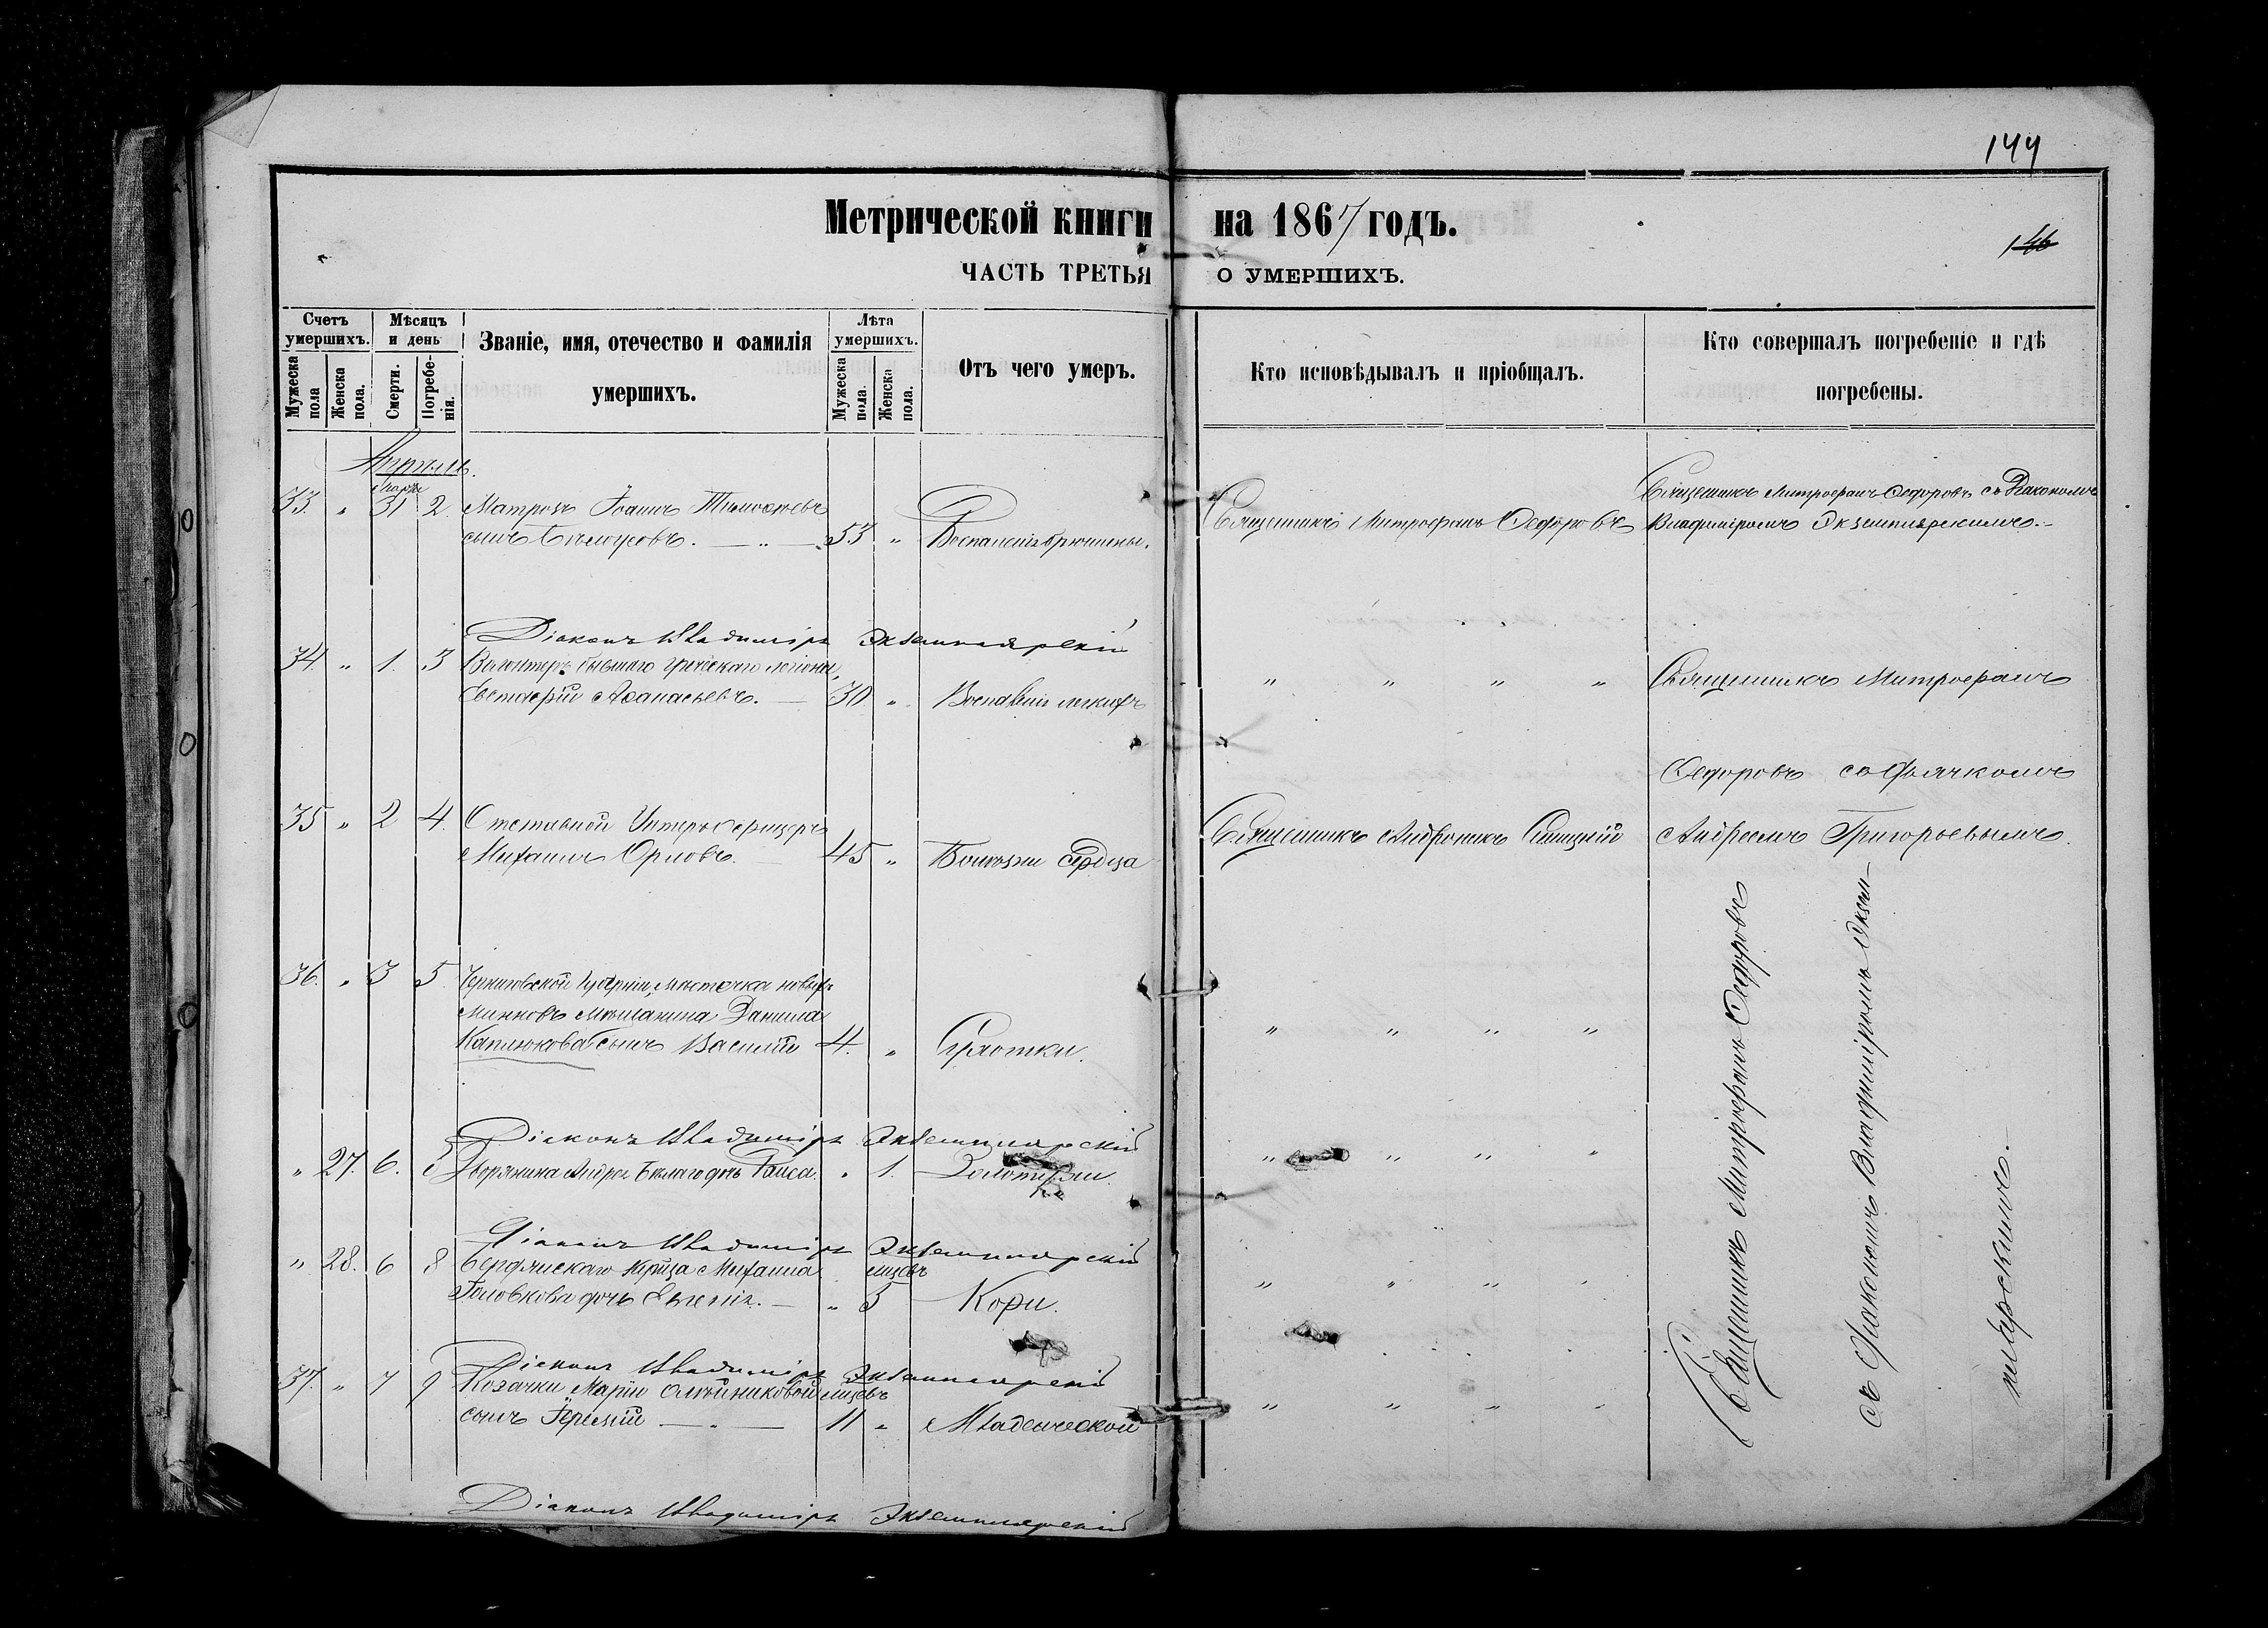 144
Метрической книги на 1867 годъ.
146
ЧАСТЬ ТРЕТЬЯ О УМЕРШИХЪ.
Счетъ умершихъ.
Мужеска пола
Женска пола.
Мѣсяцъ и день
Смерти.
Погребенія.
Званіе, имя, отечество и фамилія
умершихъ.
Лѣта умершихъ.
Мужеска пола.
Женска пола.
Отъ чего умеръ.
Кто исповѣдывалъ и пріобщалъ.
Кто совершалъ погребеніе и гдѣ
погребены.
Апрѣль.
Марта
33. " 31 2. Матрозъ Іоаннъ Тимоѳеевъ
сынъ Бѣлоусовъ. — " — 53 " Воспаленія брюшины.
Священникъ Митрофанъ Ѳедоровъ
Священникъ Митрофанъ Ѳедоровъ съ Діакономъ
Владиміромъ Экземплярскимъ.—
Діаконъ Владиміръ Экземплярскій
34. " 1. 3 Волонтеръ бывшаго греческаго легіона,
Евстафій Аѳанасьевъ. — 30 " Воспаленія легкихъ
" " " "
Священникъ Митрофанъ
Ѳедоровъ съ Дьячкомъ
35 " 2 4. Отставной Унтеръ Офицеръ
Михаилъ Орловъ. — 45 " Болѣзни сердца
Священникъ Андроникъ
Андреемъ Григорьевымъ.
36. " 3 5. Черниговской Губерніи, мѣстечка новыхъ
Млиновъ мѣщанина Данила
Каплюкова сынъ Василій 4. " Сухотки.
" " " "
Діаконъ Владиміръ Экземплярскій
" 27. 6. 8 Дворянина Андрея Бѣлаго дочь Раиса. " 1. Золотухи.
" " " "
Діаконъ Владиміръ Экземплярскій
" 28. 6 8 Бердянскаго Купца Михаила мѣсяцъ
Головкова дочь Евгенія. — " 5 Кори.
" " " "
Діаконъ Владиміръ Экземплярскій
37. " 7 9 Козачки Маріи Олѣйниковой мѣсяцъ
сынъ — " — 11 " Младенческой
" " " "
Діаконъ Владиміръ Экземплярскій
Священникъ Митрофанъ Ѳедоровъ
съ Діакономъ Владиміромъ Экзем-
плярскимъ.—